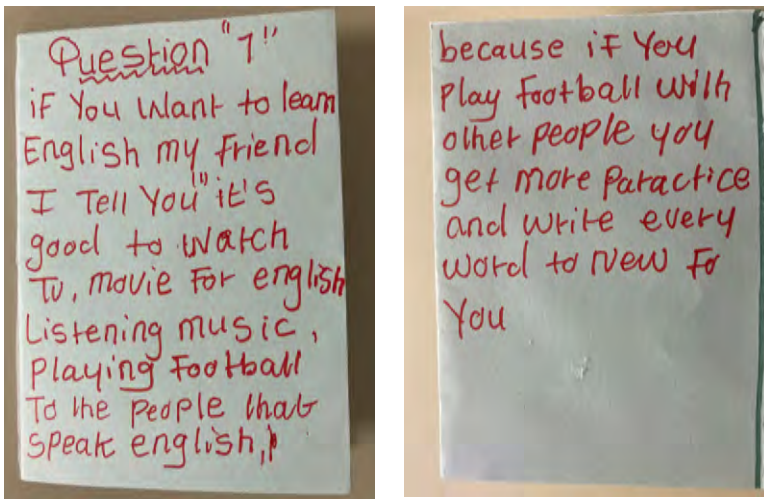 Question "1!"
if You Want to learn
English my friend
I Tell You"!" it's
good to watch
TV, movie For english
Listening music,
Playing Football
To the people that
speak english,
because if You
Play Football with
other people you
get more Paractice
and write every
word to New Fo
You